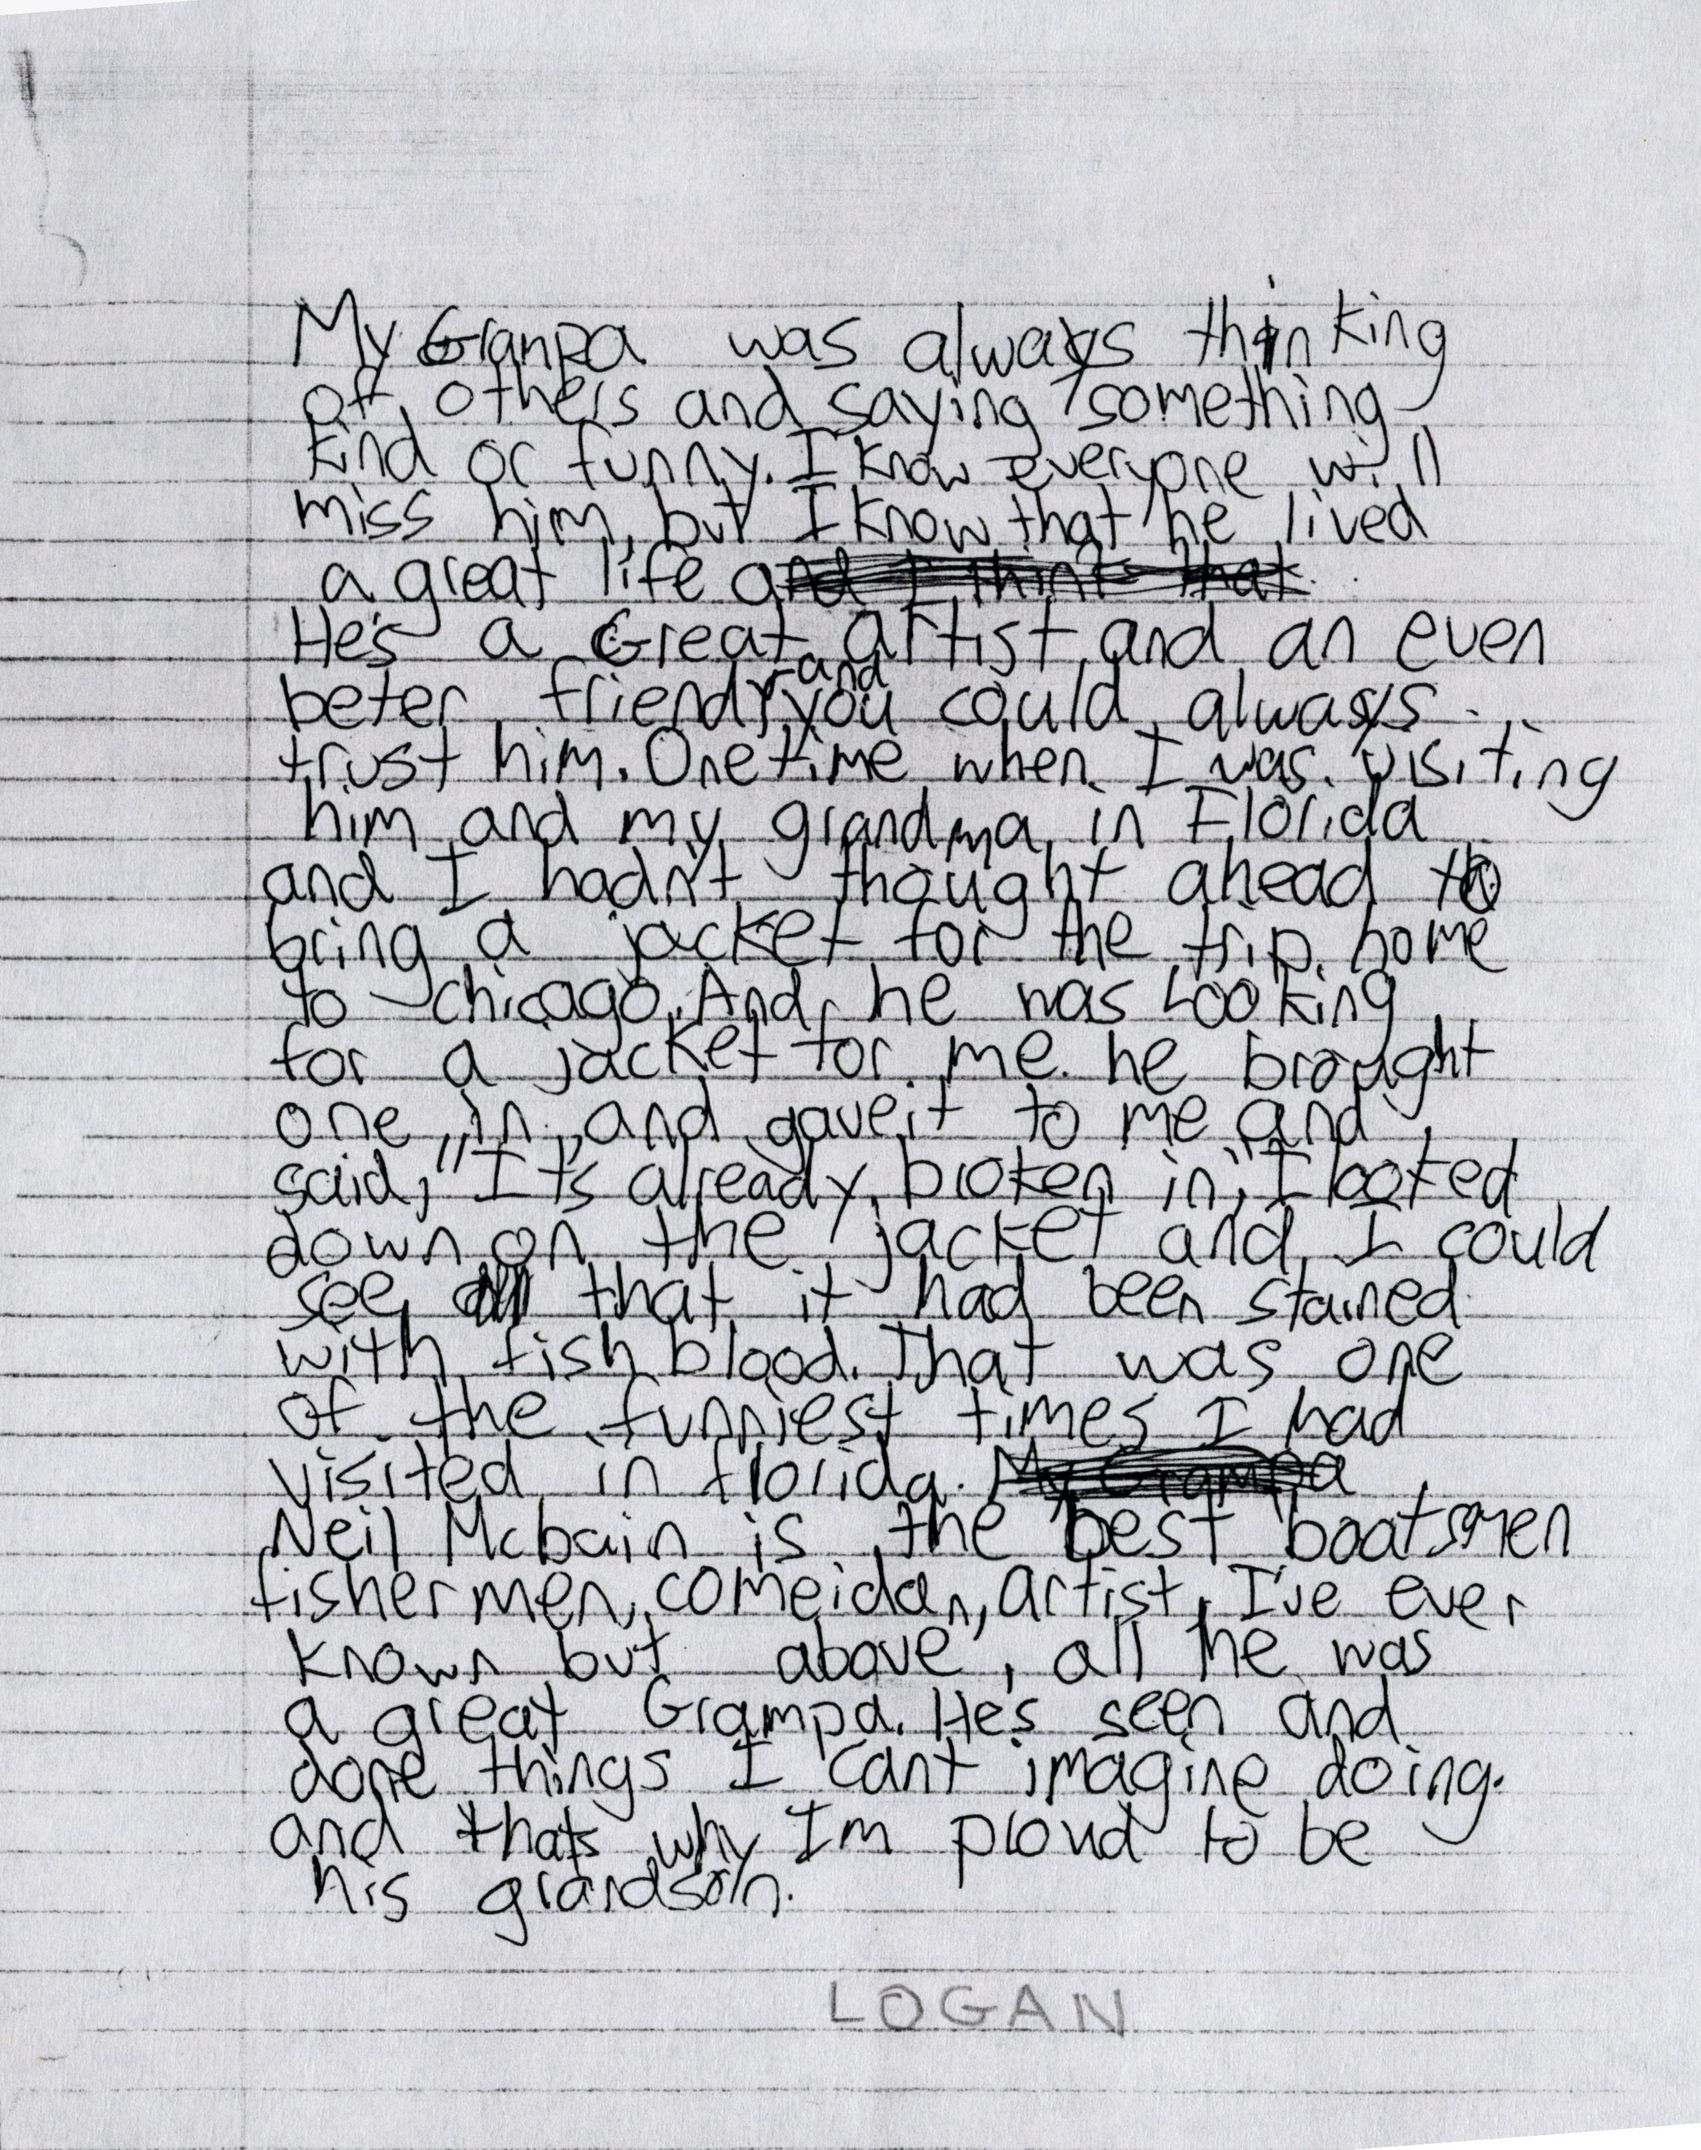 My Granpa was always thinking
of others and saying something
kind or funny. I know everyone will
miss him, but I know that he lived
a great life and I think that
He's a Great artist, and an even
beter friend, and you could always
trust him. One time when I was visiting
him and my grandma in Florida
and I hadn't thought ahead to
bring a jacket for the trip home
to chicago. And he was Looking
for a jacket for me. he brought
one in, and gave it to me and
said, "It's already broken in", I looked
down on the jacket and I could
see that it had been stained
with fish blood. That was one
of the funniest times I had
visited in florida. My Grampa
Neil Mcbain is the best boatsmen
fishermen, comeidan, artist, I've ever
known but above, all he was
a great Grampa. He's seen and
done things I cant imagine doing.
and thats why Im proud to be
his grandson.
LOGAN